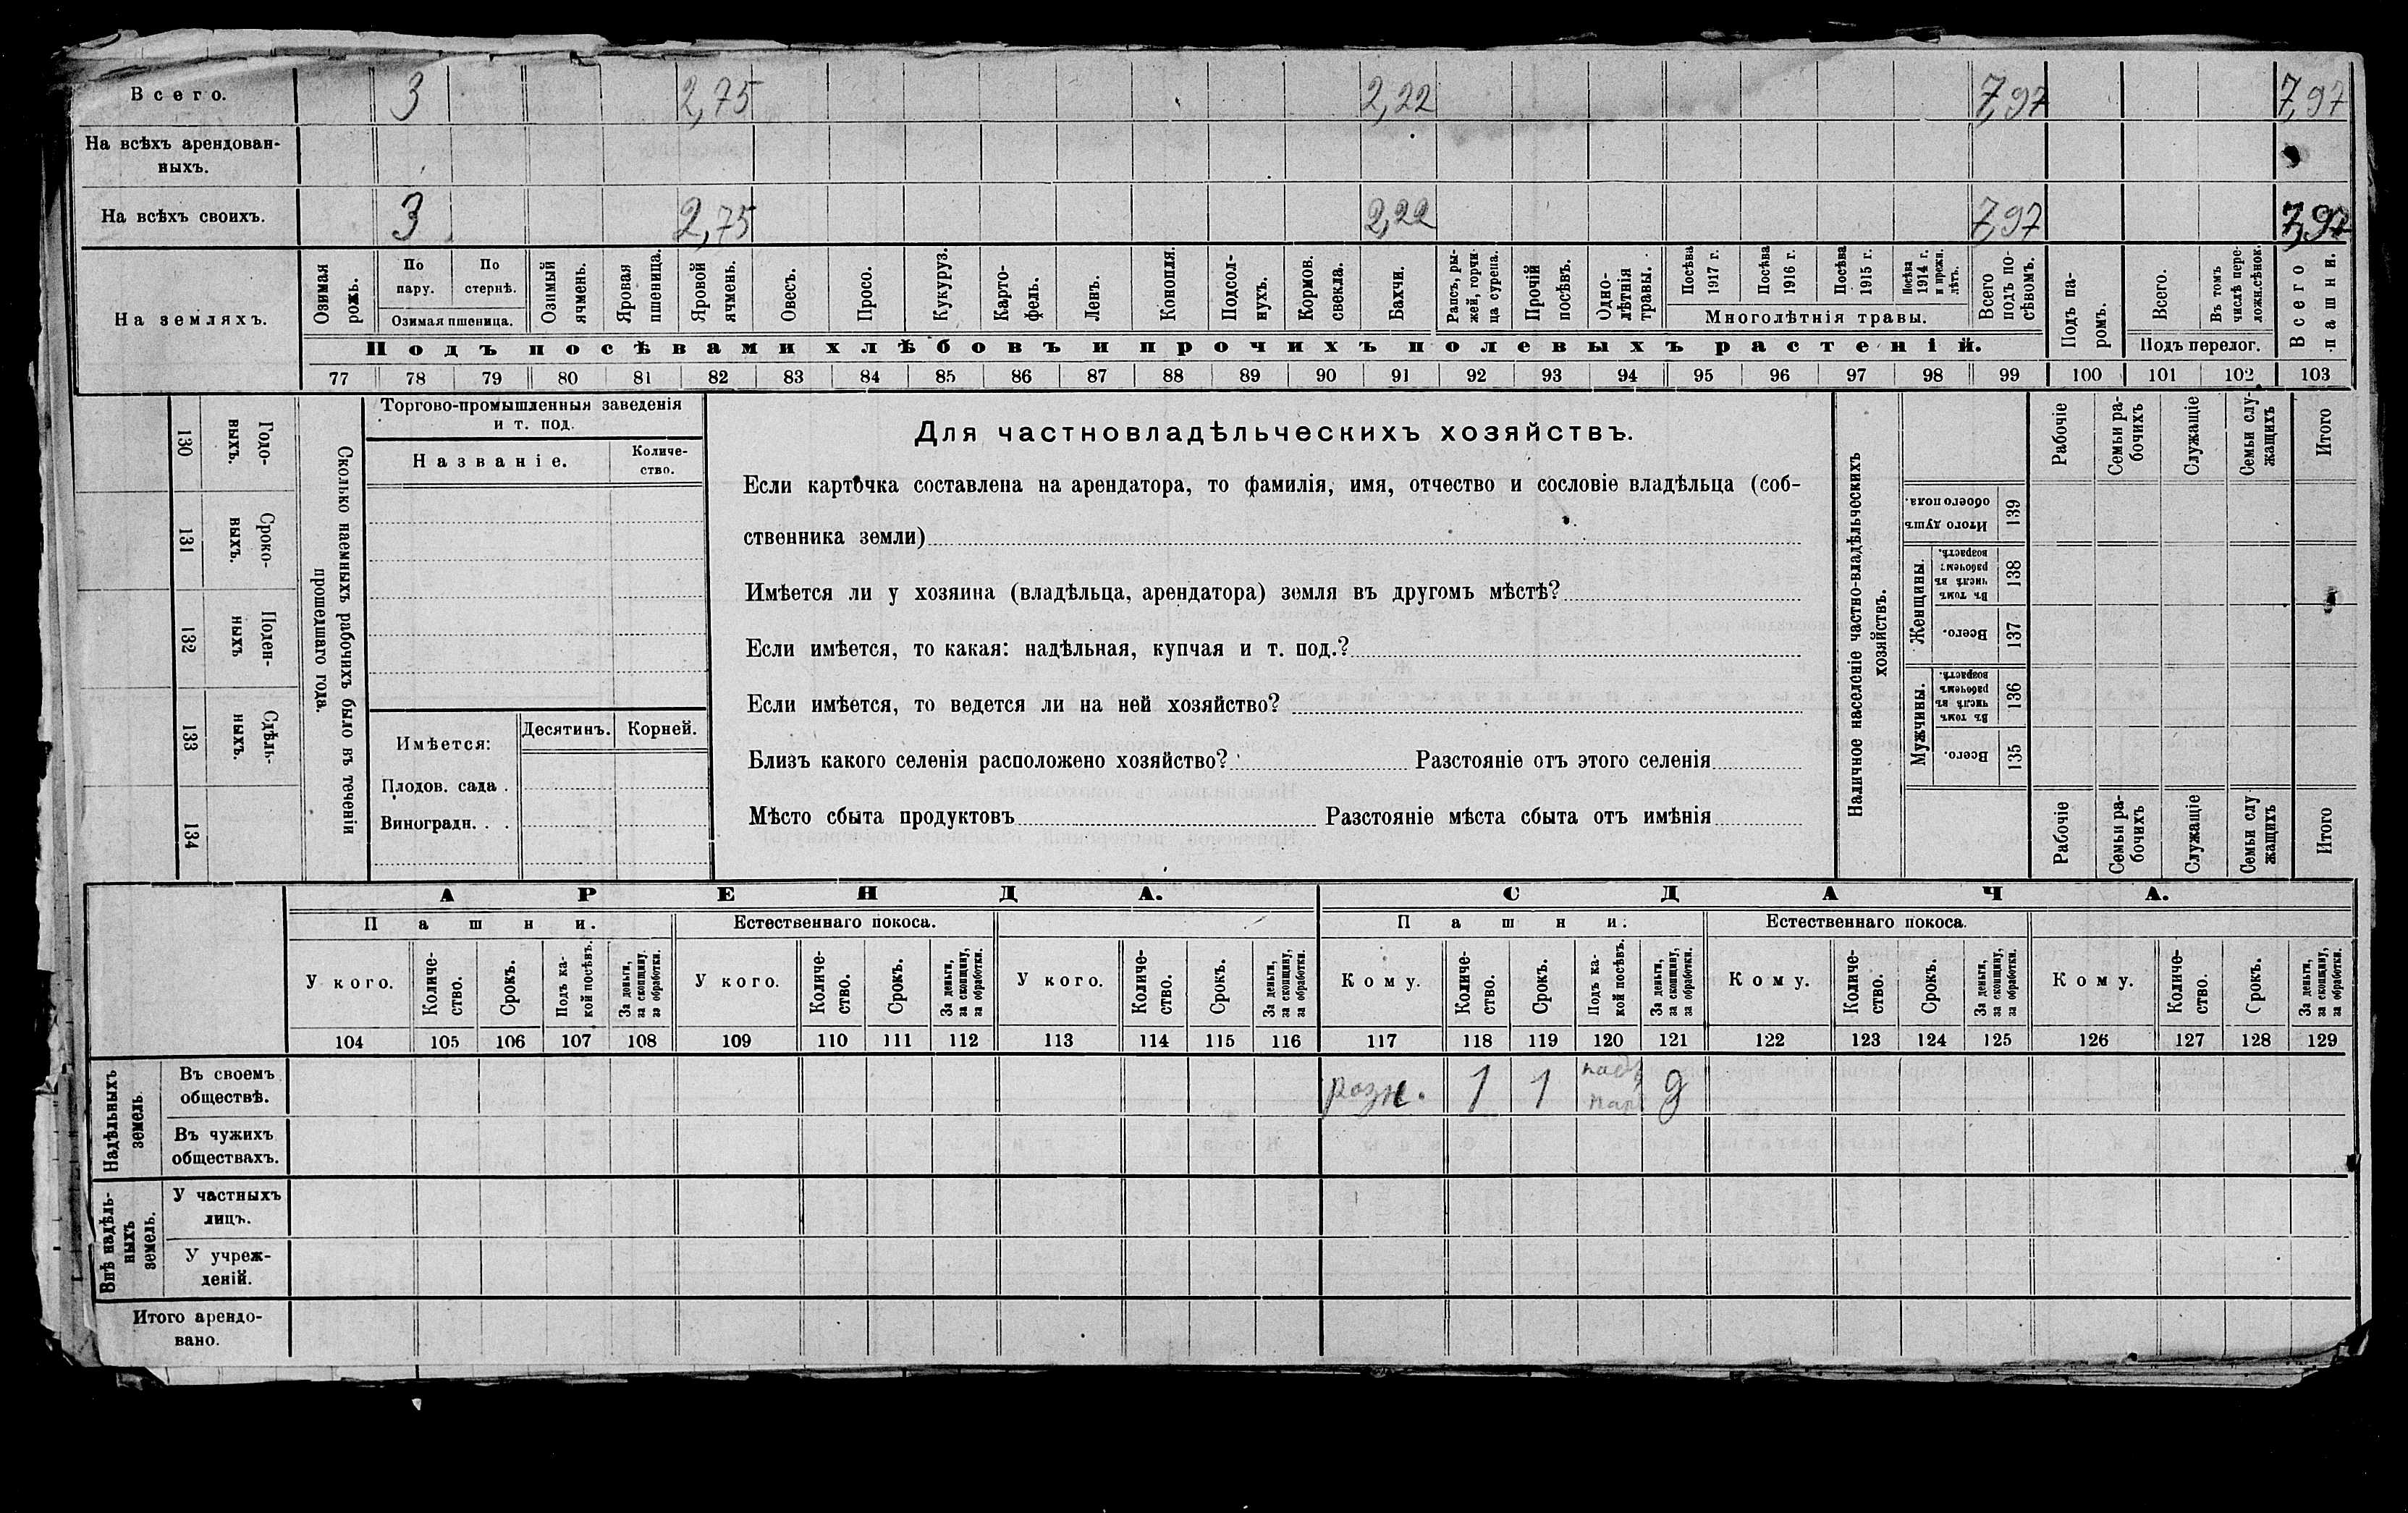 Всего. 3 2,75 2,22 7,97 7,97
На всѣхъ арендован-
ныхъ.
На всѣхъ своихъ. 3 2,75 2,22 7,97 7,97
На земляхъ.
Озимая рожь.
По пару.
По стернѣ.
Озимая пшеница.
Озимый ячмень.
Яровая пшеница.
Яровой ячмень.
Овесъ.
Просо.
Кукуруз.
Карто-
фель.
Ленъ.
Конопля.
Подсол-
нухъ.
Кормов. свекла.
Бахчи.
Рапсъ, ры-
жей, горчи-
ца сурепа.
Прочій посѣвъ.
Одно-
лѣтнія травы.
Посѣва 1917 г.
Посѣва 1916 г.
Посѣва 1915 г.
Посѣва 1914 г. и прежн. лѣтъ.
Многолѣтнія травы.
Всего подъ по-
сѣвомъ.
Подъ па-
ромъ.
Всего.
Въ томъ числѣ пере-
ложн. сѣнок.
Подъ перелог.
Всего пашни.
Подъ посѣвами хлѣбовъ и прочихъ полевыхъ растеній.
77 78 79 80 81 82 83 84 85 86 87 88 89 90 91 92 93 94 95 96 97 98 99 100 101 102 103
130 Годо-
выхъ.
131 Сроко-
выхъ.
132 Поден-
ныхъ
133 Сдѣль-
ныхъ.
134
Сколько наемныхъ рабочихъ было въ теченіи
прошедшаго года.
Торгово-промышленныя заведенія
и т. под.
Названіе.
Количе-
ство.
Имѣется:
Десятинъ. Корней.
Плодов. сада .
Виноградн. . .
Для частновладѣльческихъ хозяйствъ.
Если карточка составлена на арендатора, то фамилія, имя, отчество и сословіе владѣльца (соб-
ственника земли)
Имѣется ли у хозяина (владѣльца, арендатора) земля въ другомъ мѣстѣ?
Если имѣется, то какая: надѣльная, купчая и т. под.?
Если имѣется, то ведется ли на ней хозяйство?
Близъ какого селенія расположено хозяйство? Разстояніе отъ этого селенія
Мѣсто сбыта продуктовъ Разстояніе мѣста сбыта отъ имѣнія
Наличное населеніе частно-владѣльческихъ
хозяйствъ.
Рабочіе
Семьи ра-
бочихъ
Служащіе
Семьи слу-
жащихъ
Итого
Итого душъ обоего пола. 139
Женщины.
Въ томъ числѣ въ рабочемъ возрастѣ. 138
Всего. 137
Мужчины.
Въ томъ числѣ въ рабочемъ возрастѣ. 136
Всего. 135
Рабочіе
Семьи ра-
бочихъ
Служащіе
Семьи слу
жащихъ
Итого
АРЕНДА. СДАЧА.
Пашни. Естественнаго покоса. Пашни. Естественнаго покоса.
У кого.
Количе-
ство.
Срокъ.
Подъ ка-
кой посѣвъ.
За деньги, за скопщину, за обработки.
У кого.
Количе-
ство.
Срокъ.
За деньги, за скопщину, за обработки.
У кого.
Количе-
ство.
Срокъ.
За деньги, за скопщину, за обработки.
Кому.
Количе-
ство.
Срокъ.
Подъ ка-
кой посѣвъ.
За деньги, за скопщину, за обработки.
Кому.
Количе-
ство.
Срокъ.
За деньги, за скопщину, за обработки.
Кому.
Количе-
ство.
Срокъ.
За деньги, за скопщину, за обработки.
104 105 106 107 108 109 110 111 112 113 114 115 116 117 118 119 120 121 122 123 124 125 126 127 128 129
Надѣльныхъ
земель.
Въ своемъ
обществѣ.
розн. 1 1
Въ чужихъ
обществахъ.
Внѣ надѣль-
ныхъ
земель.
У частныхъ
лицъ.
У учреж-
деній.
Итого арендо-
вано.